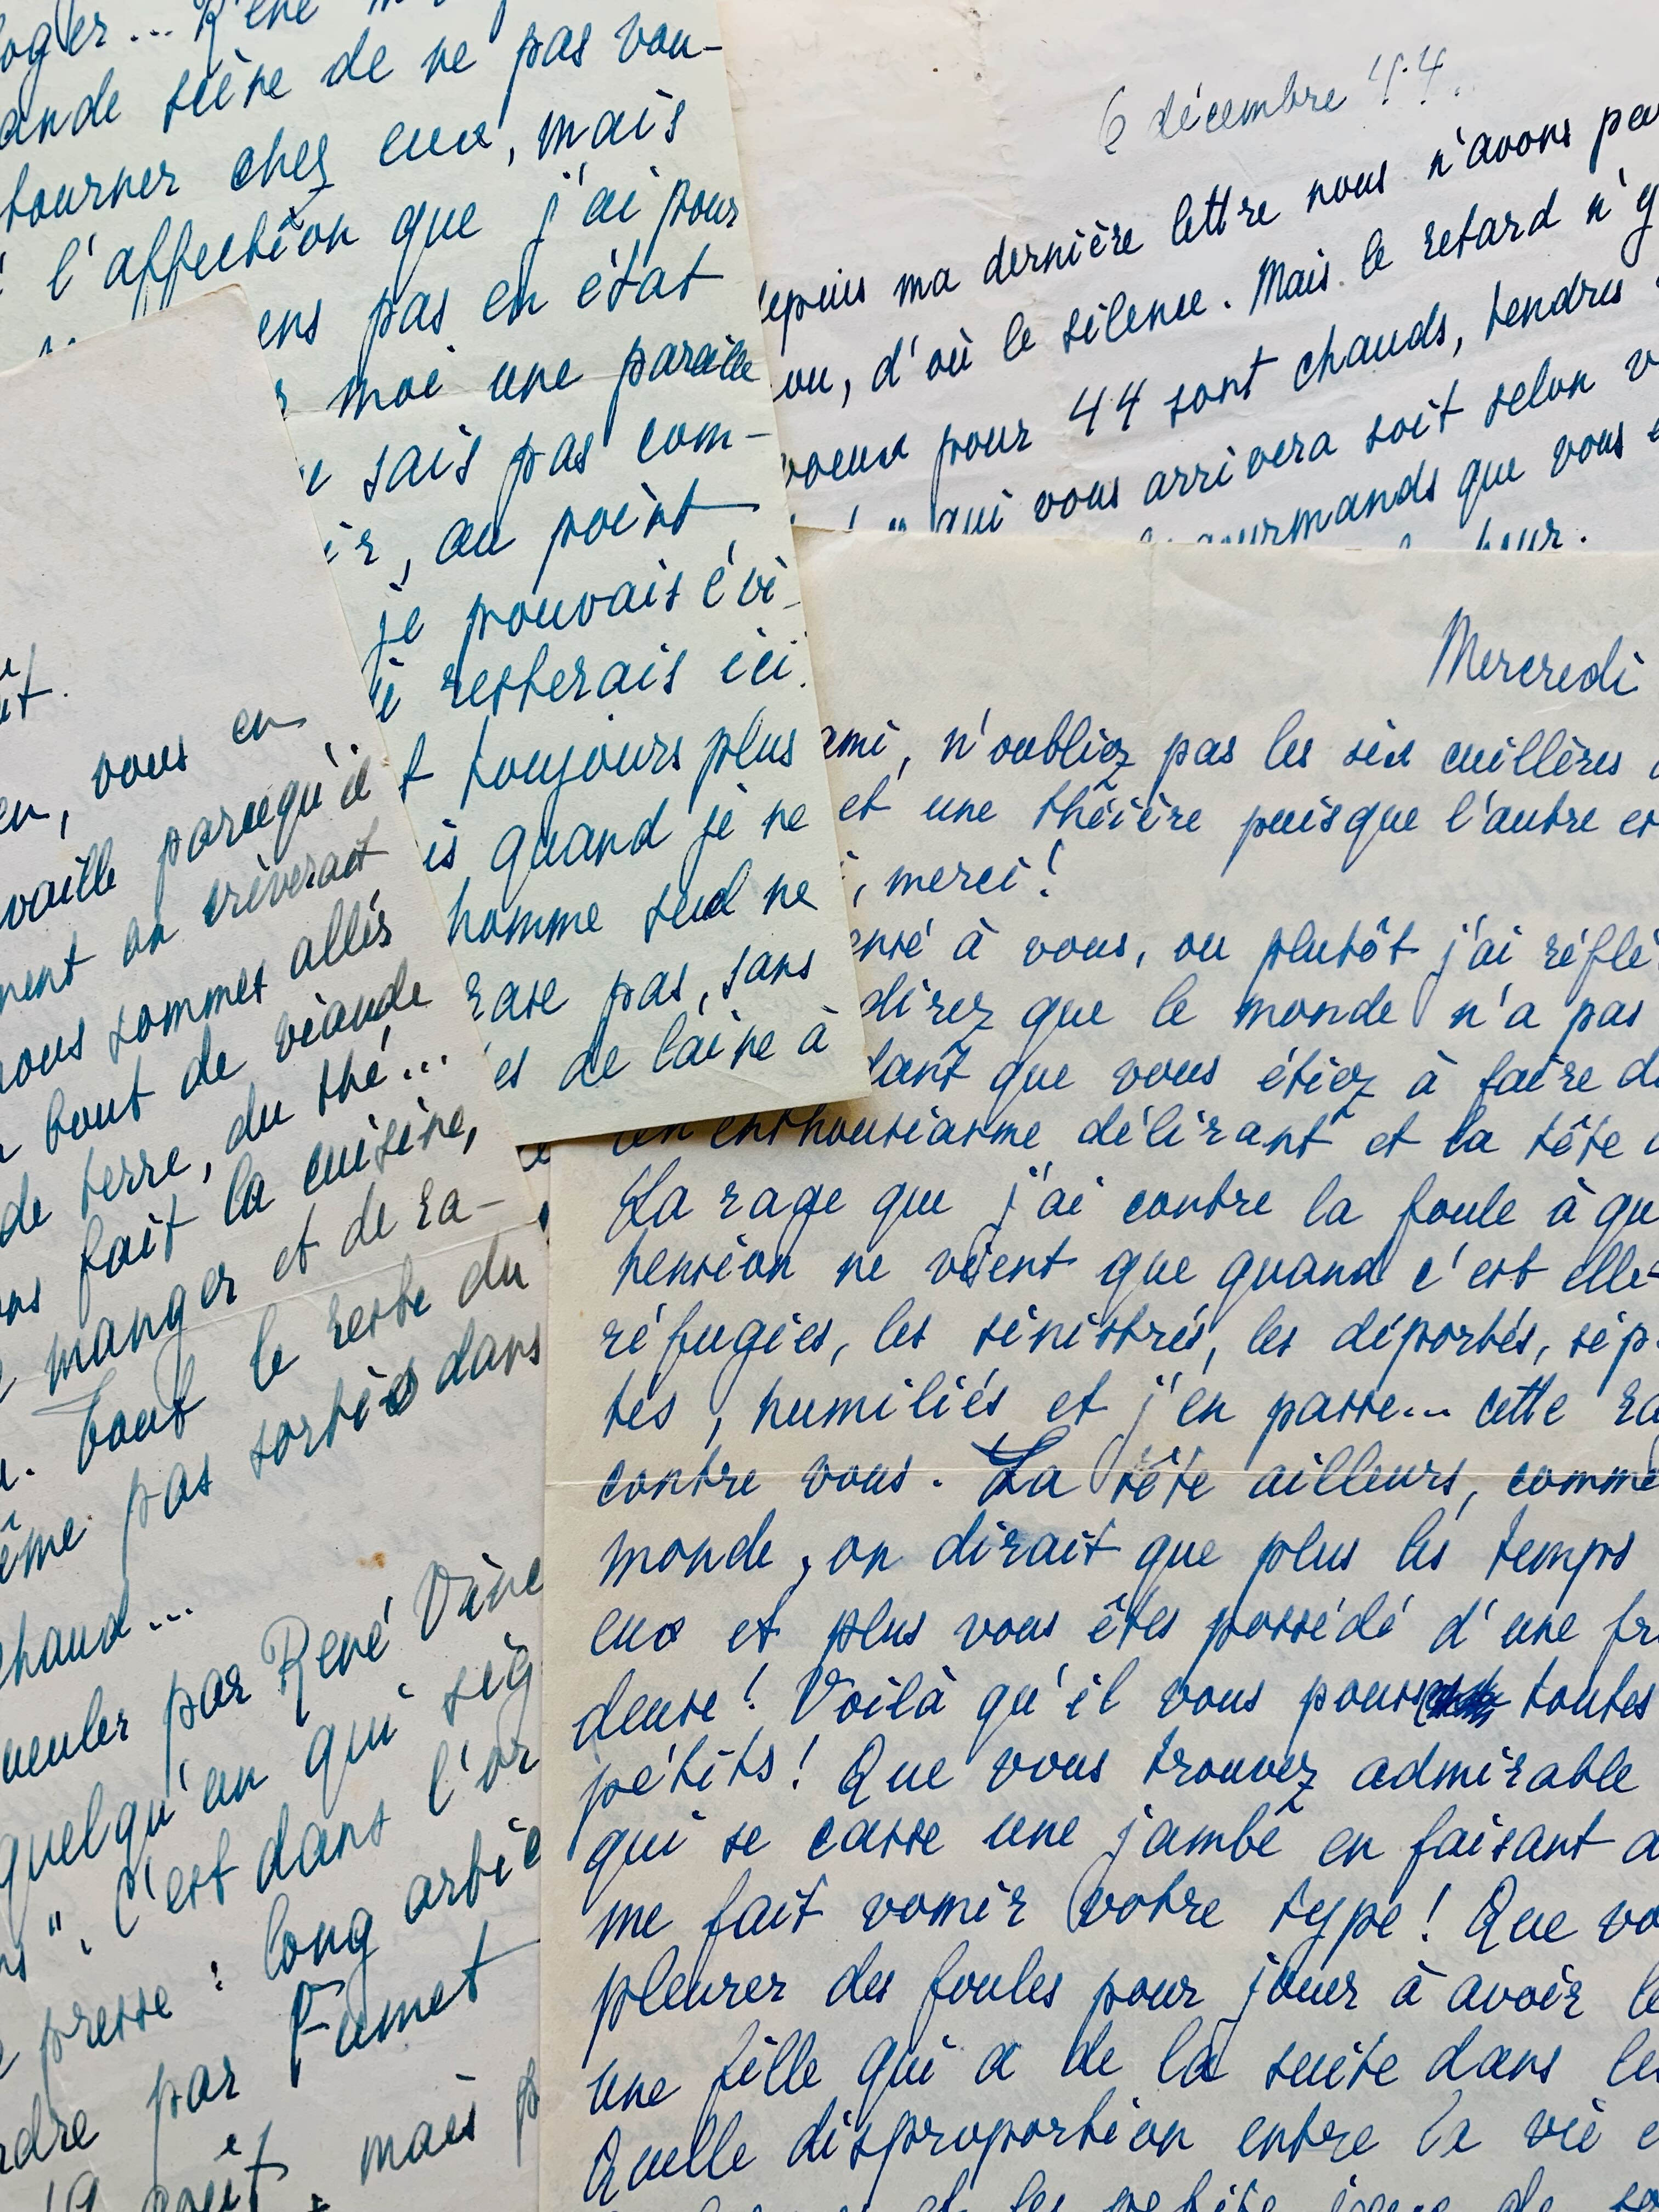 ande scène de ne pas vou-
tourner chez eux, mais
l'affection que j'ai pour
ens pas en état
moi une pareille
sais pas com-
ir, au point
je pouvais évi-
resterais ici.
t toujours plus
is quand je ne
homme seul ne
rase pas, sans
es de laine à
6 décembre 44.
depuis ma dernière lettre nous n'avons pa
ou, d'où le silence. Mais le retard n'y
voeux pour 44 sont chauds, tendres
qui vous arrivera soit selon v
gourmands que vous
Mercredi
ami, n'oubliez pas les six cuillères
et une théière puisque l'autre es
, merci!
ensé à vous, ou plutôt j'ai réflé
direz que le monde n'a pas
dant que vous étiez à faire d
un enthousiasme délirant et la tête
La rage que j'ai contre la foule à qu
hension ne vient que quand c'est elle-
réfugiés, les sinistrés, les déportés, sép
tés, humiliés et j'en passe... cette ra
contre vous. La tête ailleurs, comme
monde, on dirait que plus les temps
eux et plus vous êtes possédé d'une fr
deuse! Voilà qu'il vous pousse toutes
petits! Que vous trouvez admirable
qui se casse une jambe en faisant a
me fait vomir votre type! Que vo
pleurer des foules pour jouer à avoir le
une fille qui a de la suite dans le
Quelle disproportion entre la vie e
en, vous en
vaille parcequ'il
ment on crèverait
nous sommes allés
bout de viande
de terre, du thé...
ns fait la cuisine,
manger et de ra-
Tout le reste du
ême pas sorties dans
chaud...
ueuler par René
quelqu'un qui sig
ns". C'est dans l'or
presse: long artic
ndre par Fumet
goût, mais p